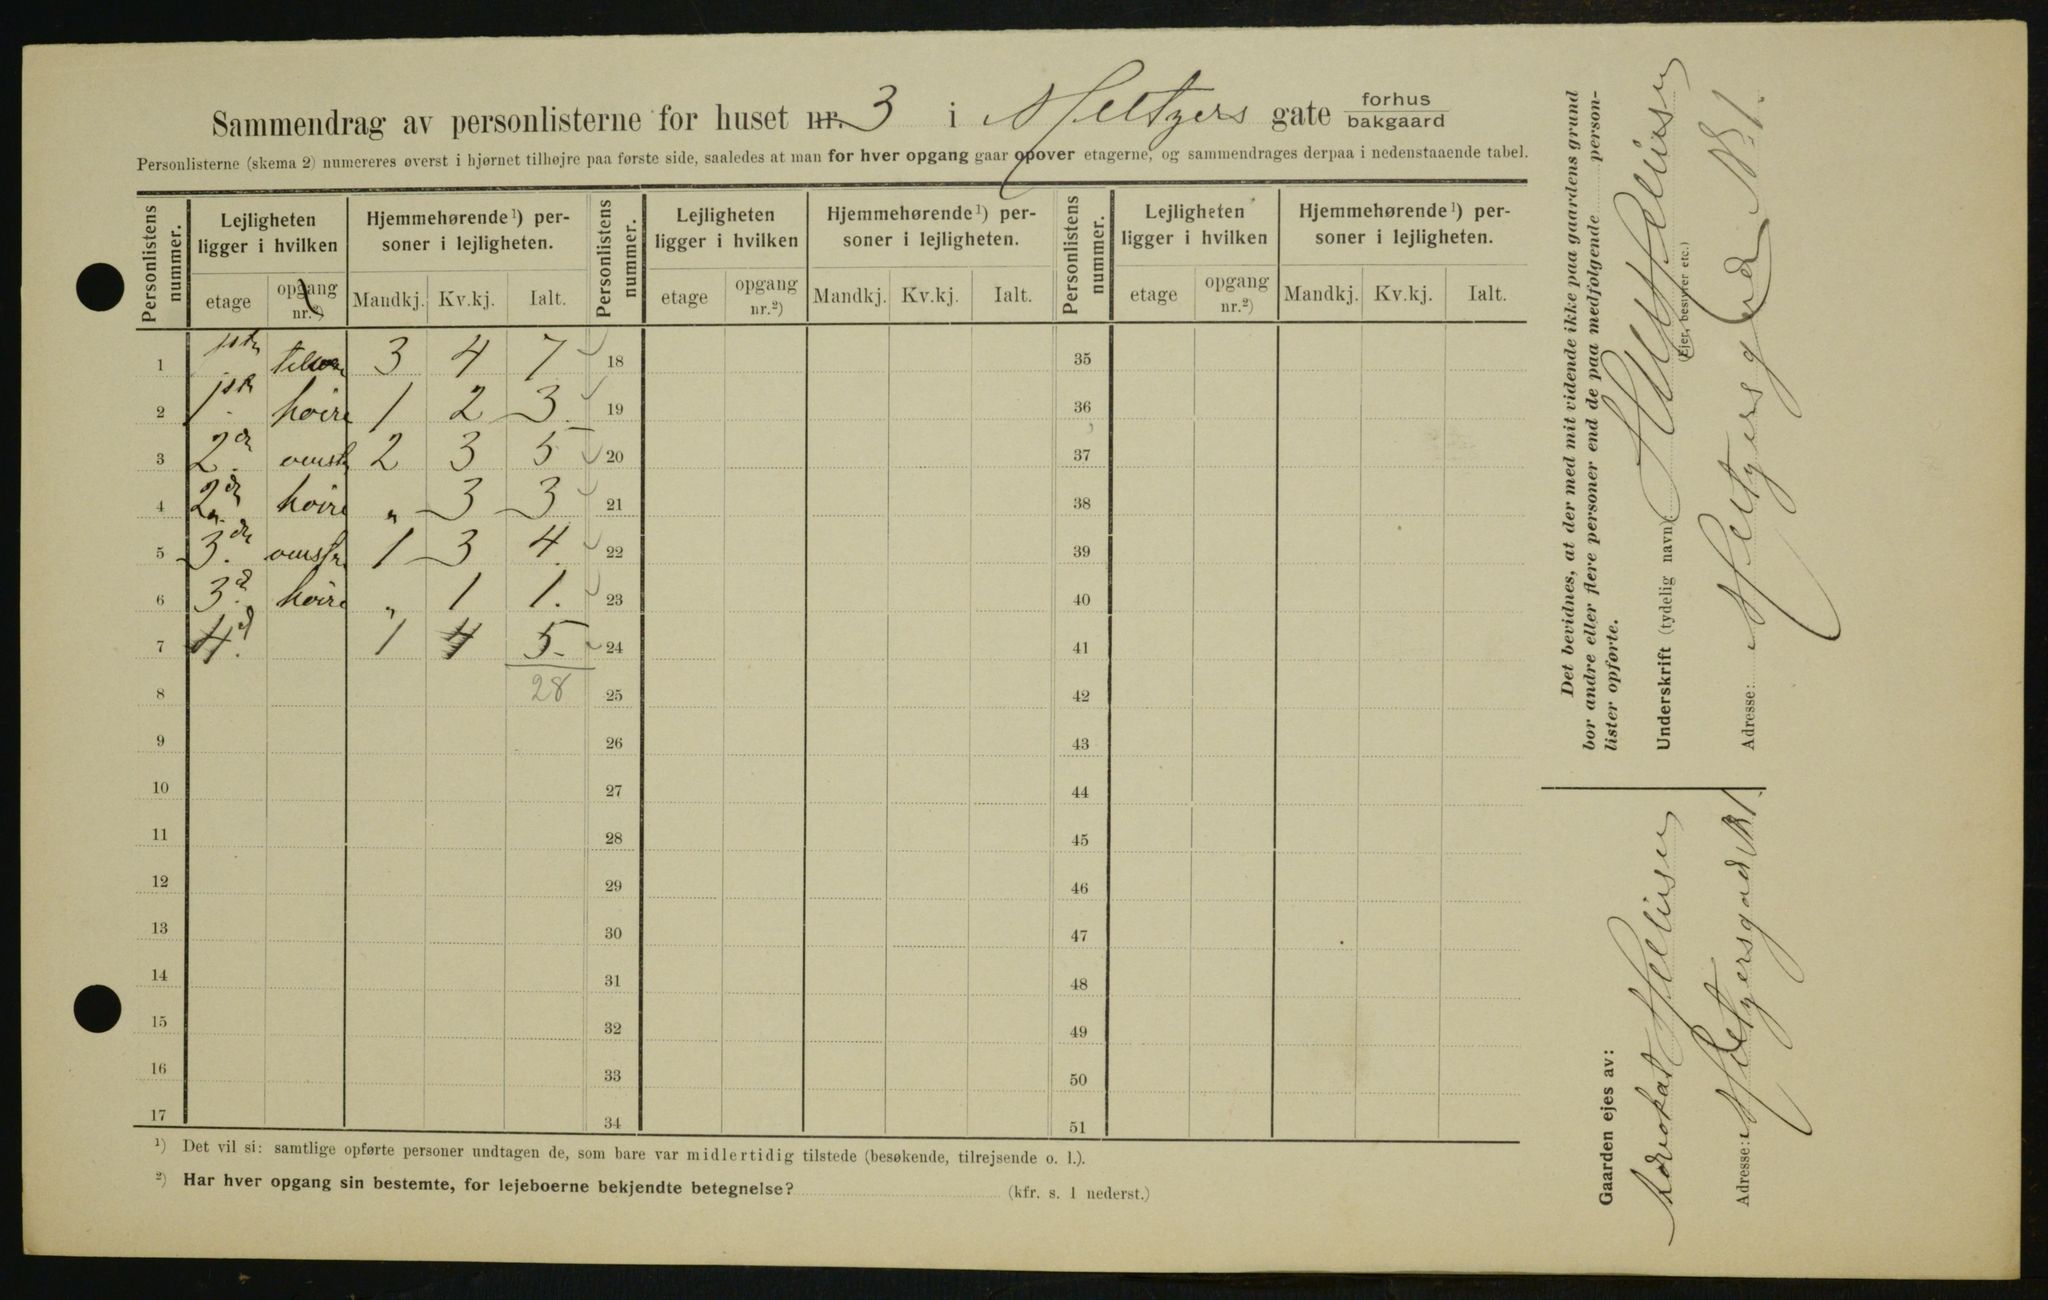 Sammendrag av personlisterne for huset nr. 3 i Meltzers gate forhus bakgaard
Personlisterne (skema 2) numereres øverst i hjørnet tilhøjre paa første side, saaledes at man for hver opgang gaar opover etagerne, og sammendrages derpaa i nedenstaaende tabel.
Personlistens nummer. Lejligheten ligger i hvilken Hjemmehørende ¹) personer i lejligheten. Personlistens nummer. Lejligheten ligger i hvilken Hjemmehørende ¹) personer i lejligheten. Personlistens nummer. Lejligheten ligger i hvilken Hjemmehørende ¹) personer i lejligheten.
etage opgang nr.²) Mandkj. Kv.kj. Ialt. etage opgang nr.²) Mandkj. Kv.kj. Ialt. etage opgang nr.²) Mandkj. Kv.kj. Ialt.
1 3 4 7 18 35
2 høire 1 2 3 19 36
3 2d venstr 2 3 5 20 37
4 2d høire " 3 3 21 38
5 3d venstr 1 3 4 22 39
6 3d høire " 1 1. 23 40
7 4d 1 4 5. 24 41
8 28 25 42
9 26 43
10 27 44
11 28 45
12 29 46
13 30 47
14 31 48
15 32 49
16 33 50
17 34 51
¹) Det vil si: samtlige opførte personer undtagen de, som bare var midlertidig tilstede (besøkende, tilrejsende o. l.).
²) Har hver opgang sin bestemte, for lejeboerne bekjendte betegnelse? (kfr. s. 1 nederst.)
Det bevidnes, at der med mit vidende ikke paa gaardens grund
bor andre eller flere personer end de paa medfølgende person-
lister opførte.
Underskrift (tydelig navn)
(Ejer, bestyrer etc.)
Adresse: Meltzersgade No 1.
Gaarden ejes av:
Advokat
Adresse: Meltzersgade No 1.